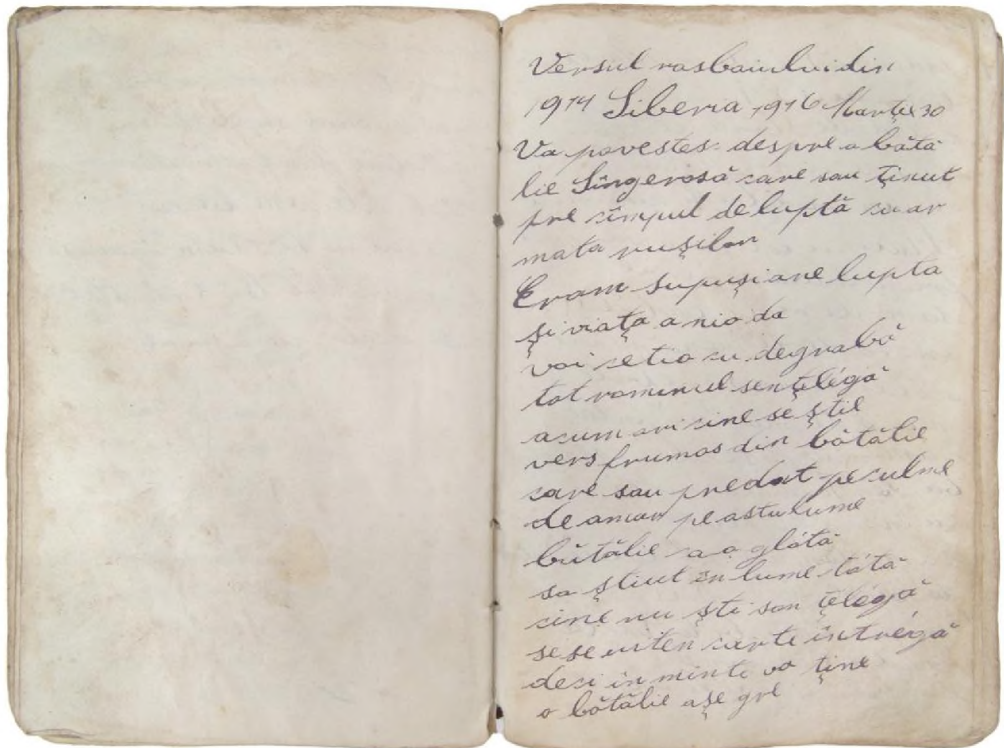 Versul rasbaiului din
1914 Siberia 1916 Martie 30
Va povestes despre o bătă
lie Sîngerosă care sau ţinut
pre cîmpul de luptă cu ar
mata ruşilor
Eram supuşi ane lupta
şi viaţa a nio da
voi cetio cu degrabă
tot rominul senţelégă
acum ori cine se ştie
vers frumos din bătălie
care sau predat pe culme
de amar pe astulume
bătălie ca o glótă
sa ştiut în lume tótă
cine nu şti son ţelégă
se se uiten carte intrégă
deci in minte va ţine
o bătălie aşe gre